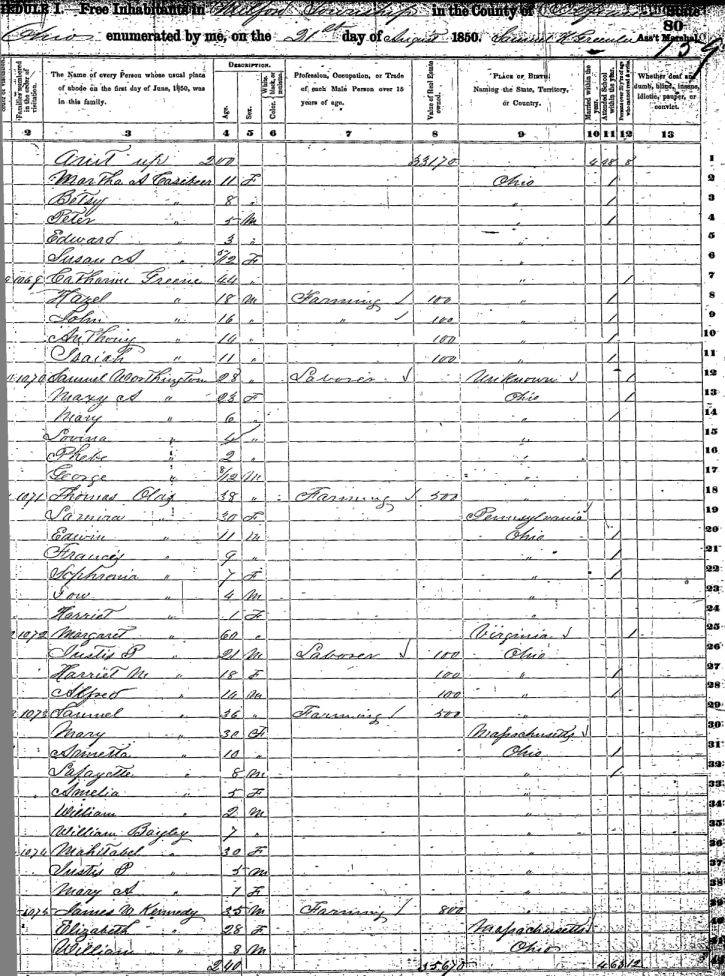 SCHEDULE I. Free Inhabitants in Milford Township in the County of State
80
Ohio enumerated by me, on the 21st day of August 1850. Samuel H Ass't Marshal.
159
DESCRIPTION.
Families numbered in the order of visitation.
The Name of every Person whose usual place of abode on the first day of June, 1850, was in this family.
Age.
Sex.
Color.
Profession, Occupation, or Trade of each Male Person over 15 years of age.
Value of Real Estate owned.
PLACE OF BIRTH. Naming the State, Territory, or Country.
Married within the year.
Attended School within the year.
Whether deaf and dumb, blind, insane, idiotic, pauper, or convict.
2 3 4 5 6 7 8 9 10 11 12 13
up 200 33170 4 48 8 1
Martha A 11 F Ohio / 2
Betsy " 8 " " / 3
Peter " 5 M " / 4
Edward " 3 " " 5
Susan A " 5/12 F " 6
1069 Catharine Greene 44 " " / 7
Hazel " 18 M Farming / 100 " / 8
John " 16 " " / 100 " / 9
Anthony " 14 " 100 " / 10
Isaiah " 11 " 100 " / 11
1070 Samuel Worthington 28 " Laborer / Unknown / / 12
Mary A " 23 F Ohio / 13
Mary " 6 " " / 14
Lovina " 4 " " 15
Phebe " 2 " " 16
George " 8/12 M " 17
1071 Thomas 38 " Farming / 500 " 18
" 30 F Pennsylvania / 19
Edwin " 11 M Ohio / 20
Francis " 9 " " / 21
Sophronia " 7 F " / 22
" 4 M " 23
Harriet " 1 F " 24
1072 Margaret " 60 " Virginia / / 25
Justis P " 21 M Laborer / 100 Ohio 26
Harriet M " 18 F 100 " / 27
Alfred " 14 M 100 " / 28
1073 Samuel " 36 " Farming / 500 " 29
Mary " 30 F Massachusetts / 30
" 10 " Ohio / 31
Lafayette " 8 M " / 32
Amelia " 5 F " 33
William " 2 M " 34
William Bagley 7 " " 35
1074 Mahitabel " 30 F " 36
Justis P " 5 M " 37
Mary A " 1 F " 38
1075 James M Kennedy 35 M Farming / 800 " 39
Elizabeth " 28 F Massachusetts /
William " 8 M Ohio
240 35670 4 63 12